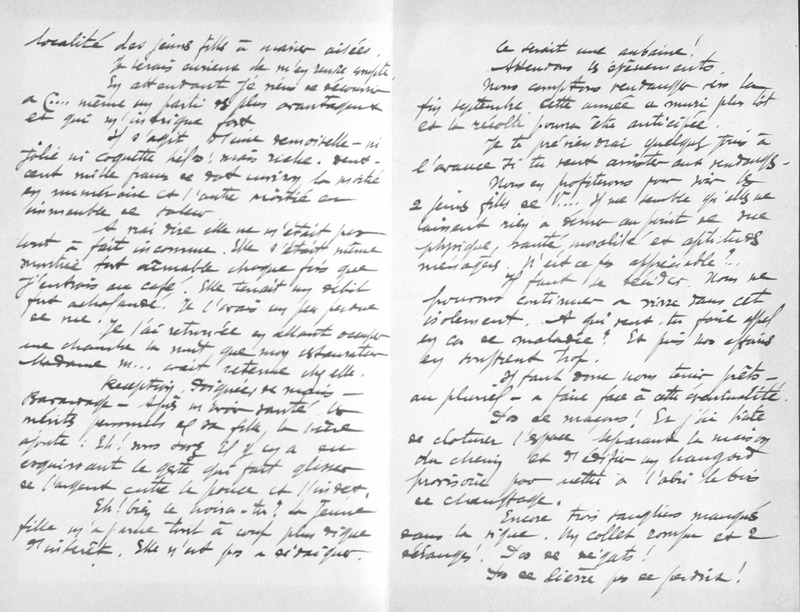 localité des jeunes filles à marier aisées.
Je serais curieux de m'en rendre compte
En attendant je viens de découvrir
a C.... même un parti des plus avantageux
et qui m'intrigue fort
Il s'agit d'une demoiselle - ni
jolie ni coquette hélas! mais riche. Deux-
cent mille francs de dot environ la moitié
en numéraire et l'autre moitié en
immeuble de valeur
A vrai dire elle ne m'était pas
tout à fait inconnue. Elle s'était même
montrée fort aimable chaque fois que
j'entrais au café. Elle tenait un débit
fort achalandé. Je l'avais un peu perdue
de vue.
Je l'ai retrouvée en allant occuper
une chambre la nuit, que mon restaurateur
Madame M... avait retenue chez elle.
Réception. Poignées de mains -
Bavardage - Après m'avoir vanté les
mérites personnels de sa fille, la mère
ajoute: Eh! mais il y a en
esquissant le geste qui fait glisser
de l'argent entre le pouce et l'index.
Eh! bien le crois-tu? cette jeune
fille m'a parue tout à coup plus digne
d'intérêt. Elle n'est pas a dédaigner.
Ce serait une aubaine!
Attendons les évènements
Nous comptons vendanger vers la
fin septembre Cette année a muri plus tôt
et la récolte pourra être anticipée.
Je te préviendrai quelques jours à
l'avance si tu veux assister aux vendanges -
Nous en profiterons pour voir les
2 jeunes filles de V.... Il me semble qu'elles ne
laissent rien a désirer au point de vue
physique, santé, moralité et aptitudes
ménagères. N'est ce pas appréciable?..
Il faut se décider. Nous ne
pouvons continuer a vivre dans cet
isolement. A qui veux-tu faire appel
en cas de maladie? Et puis nos affaires
en souffrent trop.
Il faut donc nous tenir prêts -
au pluriel - a faire face à cette éventualité.
Pas de maçons! Et j'ai hâte
de cloturer l'espace séparant la maison
du chemin et d'édifier un hangard
provisoire pour mettre a l'abri le bois
de chauffage.
Encore trois sangliers manqués
dans la vigne. Un collet rompu et 2
dérangés. Pas de dégats!
Pas de lierre pas de perdrix!